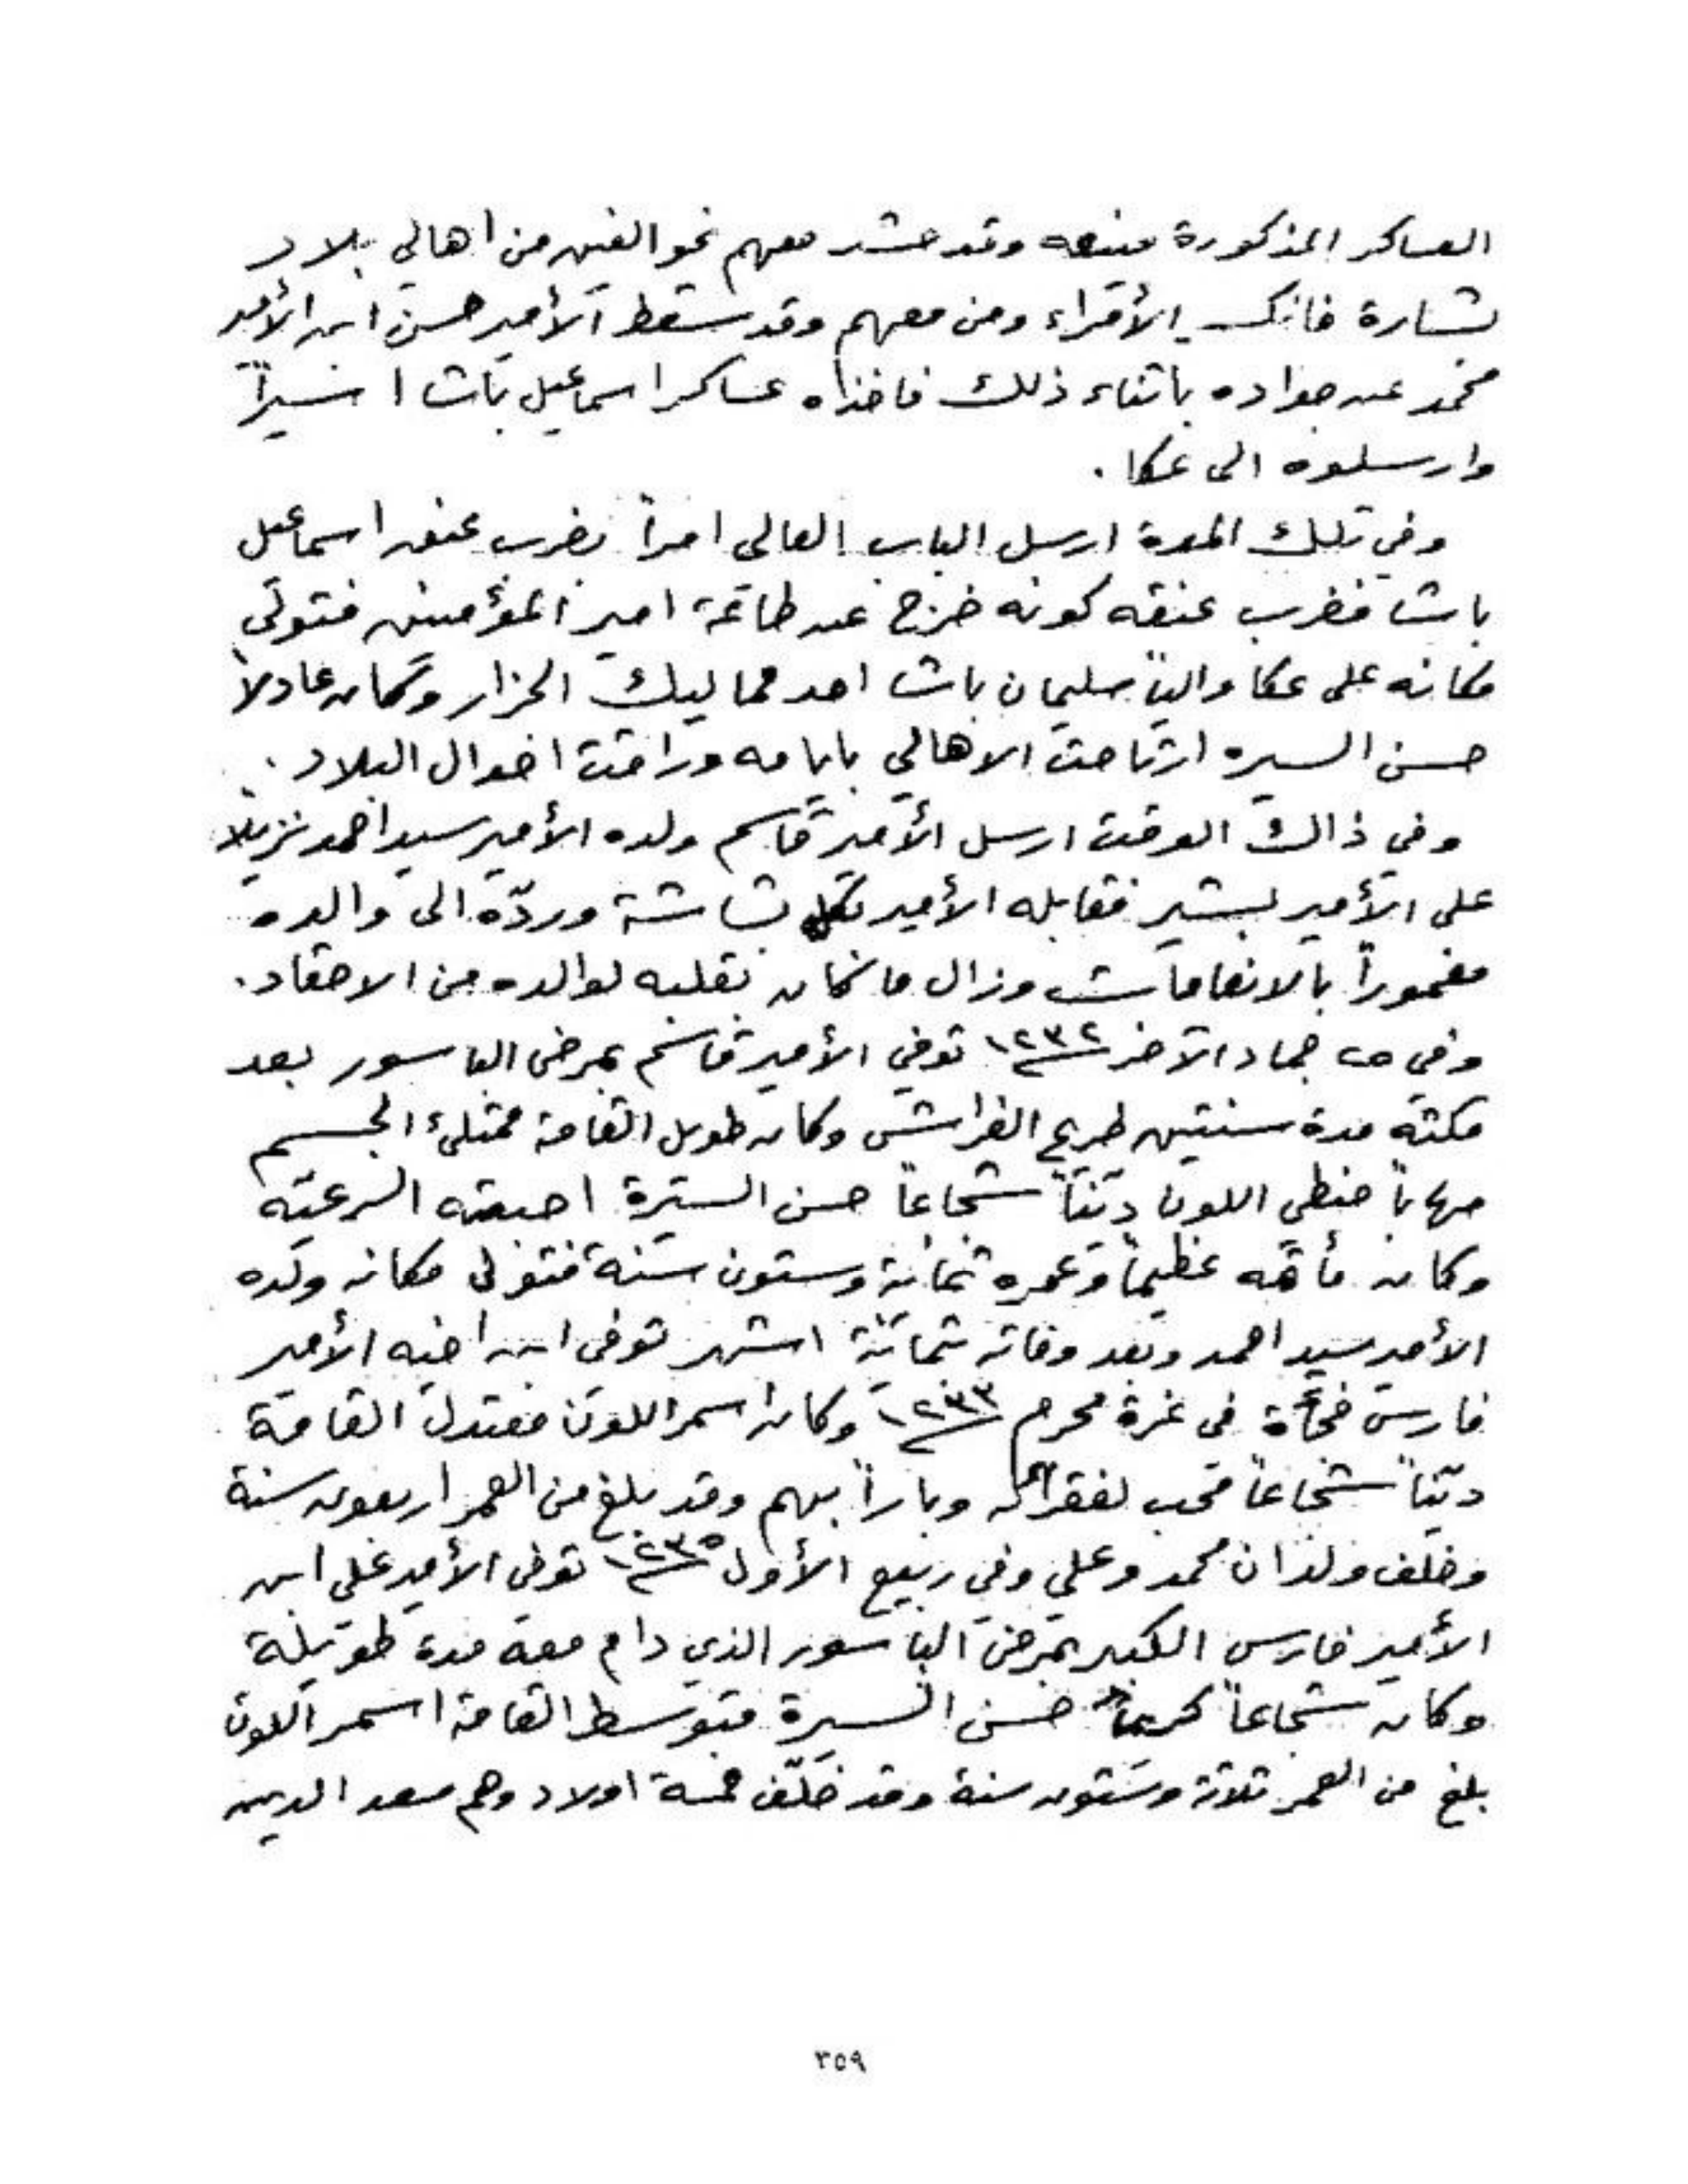 العساكر المذكورة منعه وقد حشد معهم نحو الفين من اهالي بلاد
بشارة فانكسر الأمراء ومن معهم وقد سقط الأمير حسن ابن الأمير
محمد عن جواده باثناء ذلك فاخذاه عساكر اسماعيل باشا اسيراً
وارسلوه الى عكا .
وفي تلك المدة ارسل الباب العالي امراً بضرب عنق اسماعيل
باشا فضرب عنقه كونه خرج عن طاعة امير المؤمنين فتولى
مكانه على عكا والياً سليمان باشا احد مماليك الجزار وكان عادلاً
حسن السيره ارتاحت الاهالي بايامه وراقت احوال البلاد .
وفي ذالك الوقت ارسل الأمير قاسم ولده الأمير سيد احمد نزيلاً
على الأمير بشير فقابله الأمير بكل بشاشة وردّه الى والده
مغموراً بالانعامات وزال ما كان بقلبه لوالده من الاحقاد .
وفي ٢٥ جماد الآخر ١٢٣٢ توفي الأمير قاسم بمرض الباسور بعد
مكثه مدة سنتين طريح الفراش وكان طويل القامة ممتلئ الجسم
مهاباً حنطي اللون ديّناً شجاعاً حسن السيرة احبته الرعيّه
وكان مأتمه عظيماً وعمره ثمانية وستون سنة فتولى مكانه ولده
الأمير سيد احمد وبعد وفاته بثمانية اشهر توفى ابن اخيه الأمير
فارس فجأة في غرة محرم ١٢٣٣ وكان اسمر اللون معتدل القامة
ديّناً شجاعاً محب لفقراء وباراً بهم وقد بلغ من العمر اربعون سنة
وخلف ولدان محمد وعلي وفي ربيع الأول ١٢٣٥ توفى الأمير علي ابن
الأمير فارس الكبير بمرض الباسور الذي دام معه مدة طويلة
وكان شجاعاً كريماً حسن السيرة متوسط القامة اسمر اللون
بلغ من العمر ثلاثة وستون سنة وقد خلّف خمسة اولاد وهم سعد الدين
٣٥٩